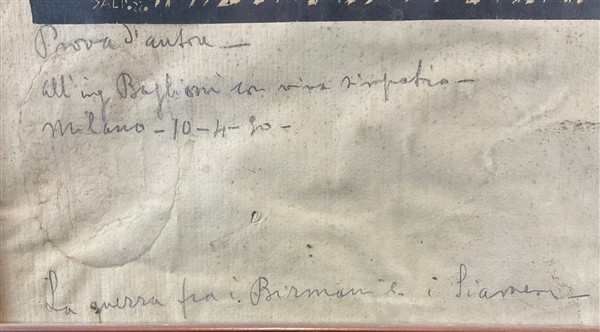 Prova d'autore —
all'ing Baglioni con viva simpatia —
Milano - 10 - 4 - 30 -
La guerra fra i Birmani e i Siamesi —